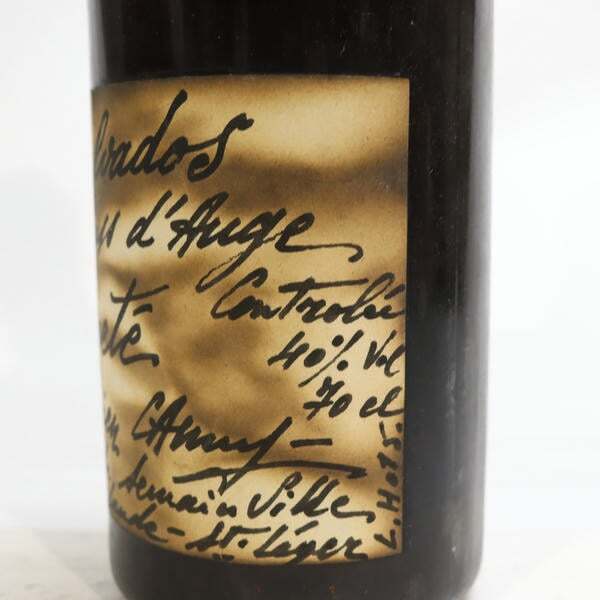 lvados
ys d'Auge
Controlée
eté
40% Vol
70 cl
ien Camut
Semainville
lande - St. Léger